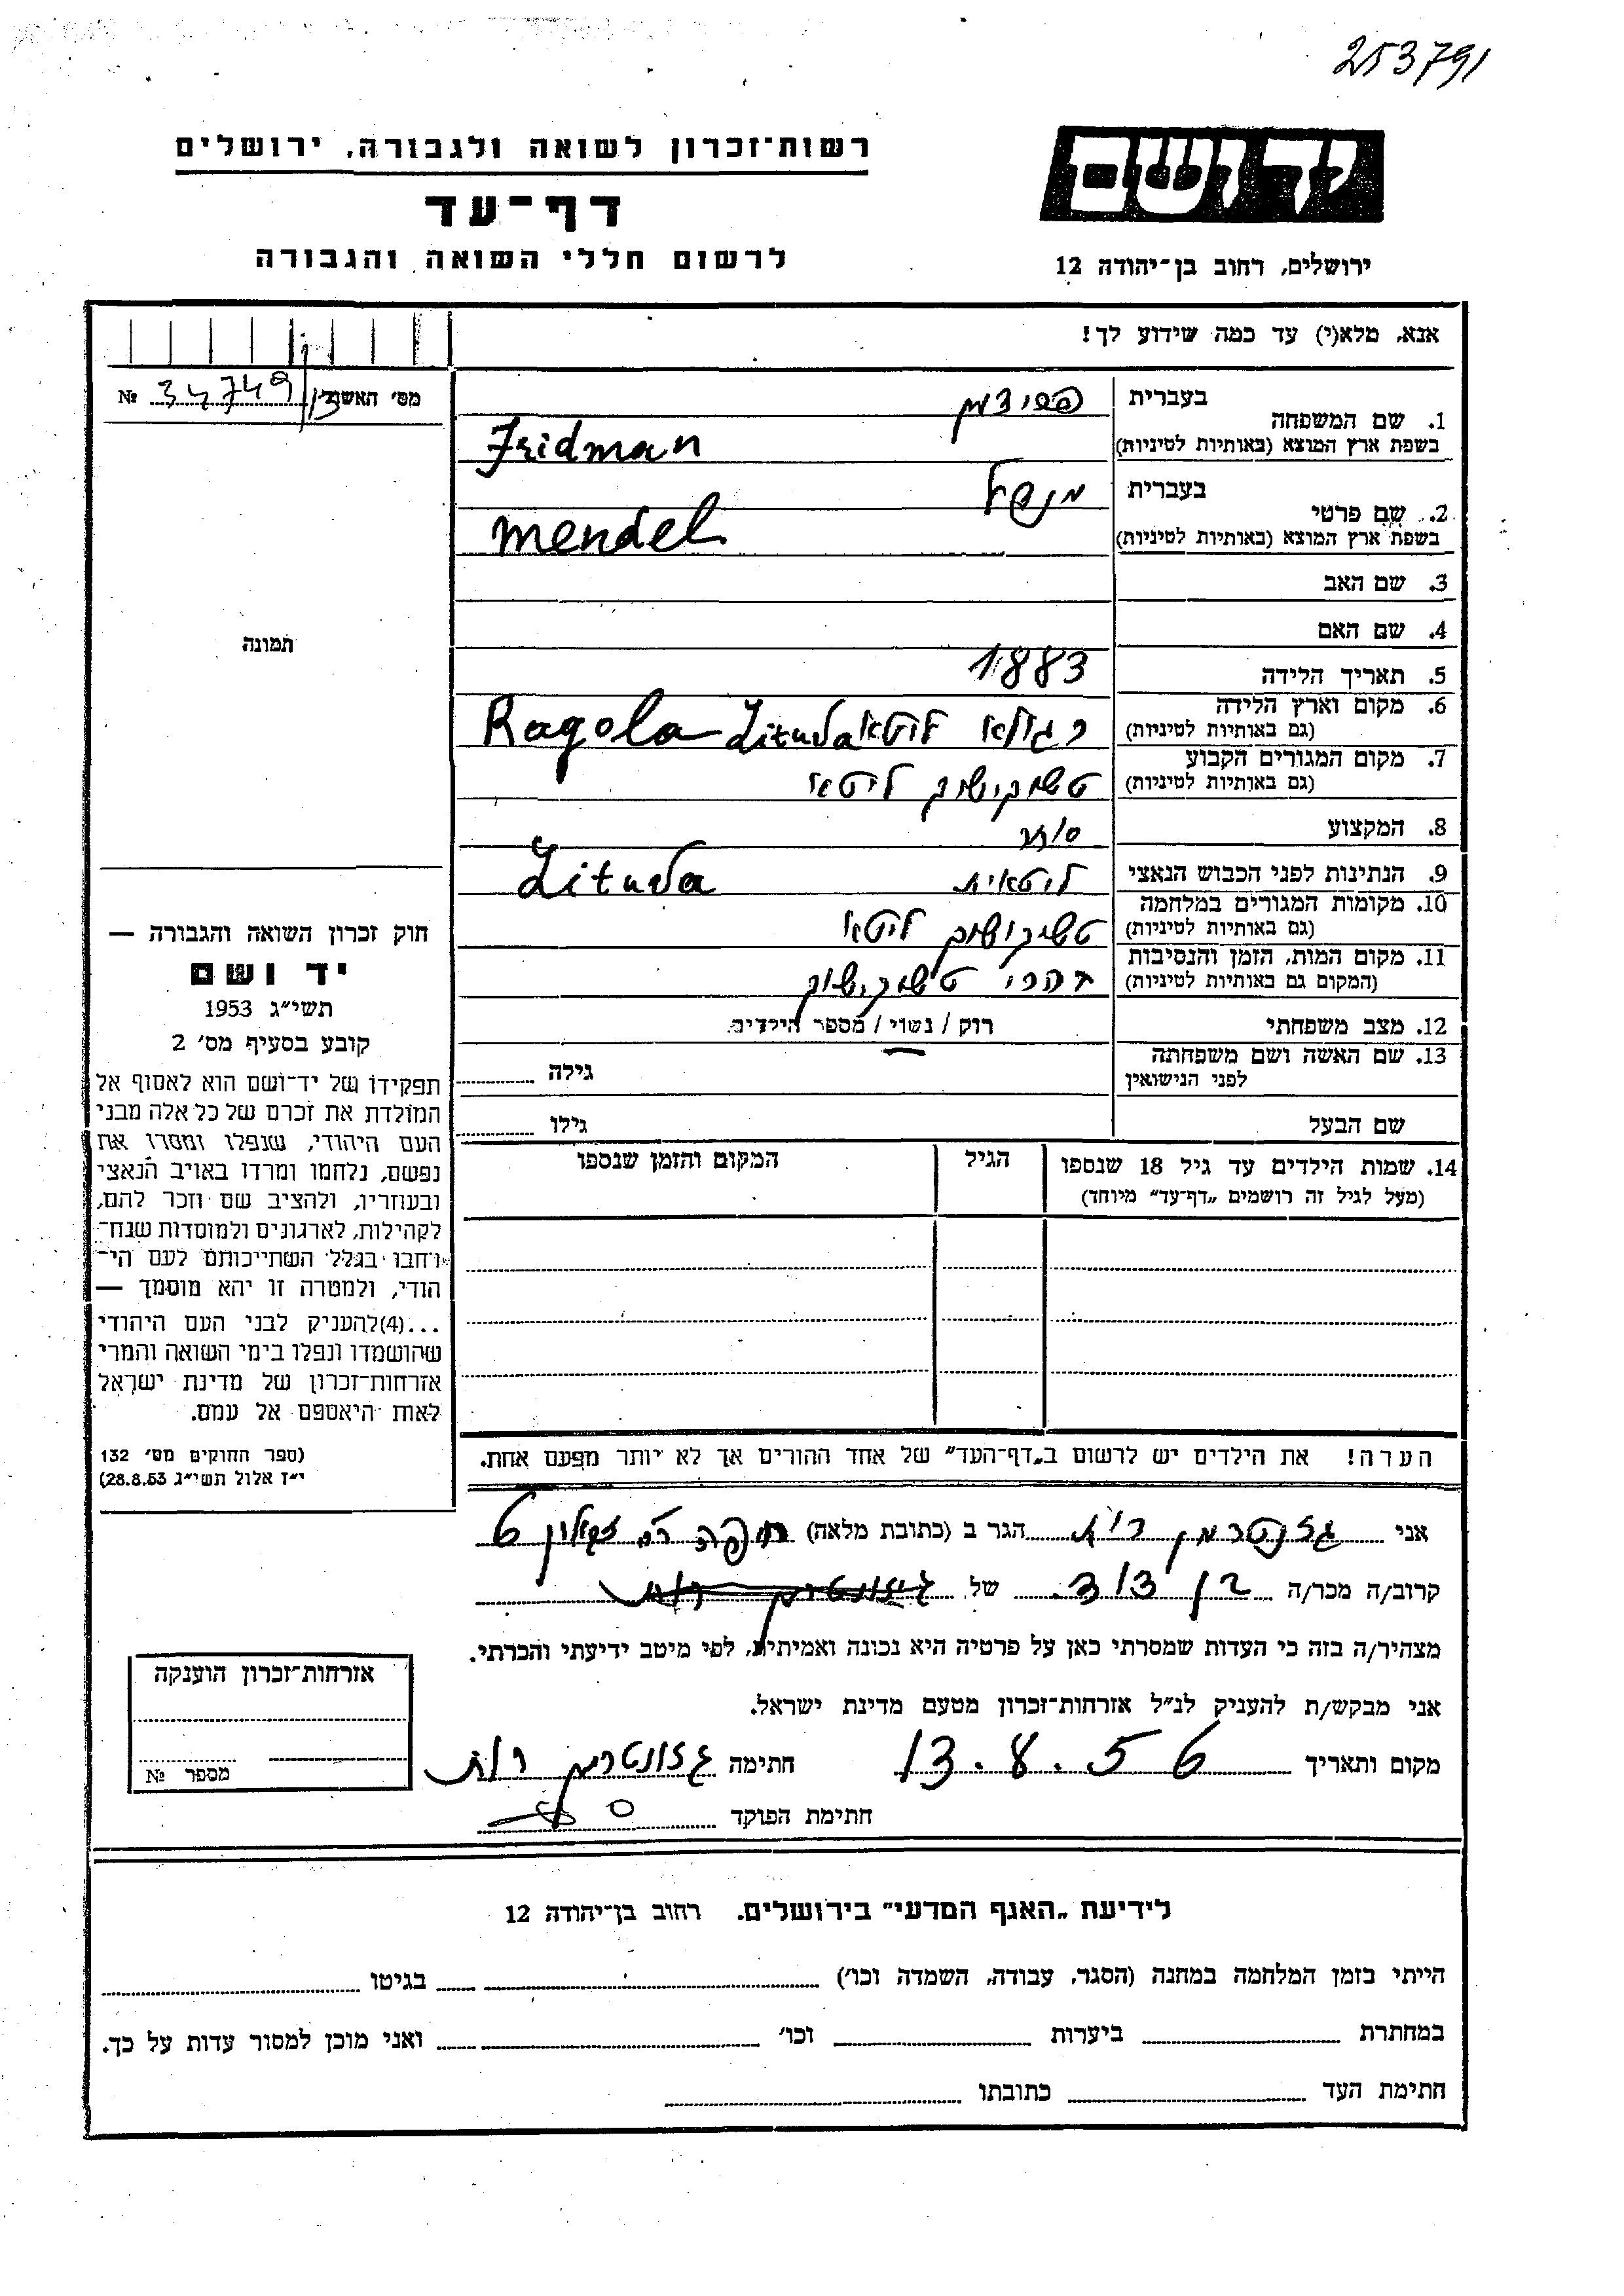 253791
יד ושם
ירושלים, רחוב בן־יהודה 12
רשות־זכרון לשואה ולגבורה, ירושלים
דף־עד
לרשום חללי השואה והגבורה
אנא, מלא(י) עד כמה שידוע לך!
מס' האשה /13 34749 №
1. שם המשפחה בעברית פרידמן
בשפת ארץ המוצא (באותיות לטיניות) Fridman
2. שם פרטי בעברית מנדל
בשפת ארץ המוצא (באותיות לטיניות) mendel
3. שם האב
4. שם האם
5. תאריך הלידה 1883
6. מקום וארץ הלידה
(גם באותיות לטיניות) רגולא ליטא Lituva Ragola
7. מקום המגורים הקבוע
(גם באותיות לטיניות) ליטא
8. המקצוע סוחר
9. הנתינות לפני הכבוש הנאצי ליטאית Lituva
10. מקומות המגורים במלחמה
(גם באותיות לטיניות) ליטא
11. מקום המות, הזמן והנסיבות
(המקום גם באותיות לטיניות)
12. מצב משפחתי רוק / נשוי / מספר הילדים
13. שם האשה ושם משפחתה
לפני הנישואין גילה
שם הבעל גילו
14. שמות הילדים עד גיל 18 שנספו הגיל המקום והזמן שנספו
(מעל לגיל זה רושמים „דף־עד" מיוחד)
הערה! את הילדים יש לרשום ב„דף־העד" של אחד ההורים אך לא יותר מפעם אחת.
תמונה
חוק זכרון השואה והגבורה —
יד ושם
תשי"ג 1953
קובע בסעיף מס' 2
תפקידו של יד־ושם הוא לאסוף אל
המולדת את זכרם של כל אלה מבני
העם היהודי, שנפלו ומסרו את
נפשם, נלחמו ומרדו באויב הנאצי
ובעוזריו, ולהציב שם וזכר להם,
לקהילות, לארגונים ולמוסדות שנח־
רחבו בגלל השתייכותם לעם הי־
הודי, ולמטרה זו יהא מוסמך —
...(4)להעניק לבני העם היהודי
שהושמדו ונפלו בימי השואה והמרי
אזרחות־זכרון של מדינת ישראל
לאות היאספם אל עמם.
(ספר החוקים מס' 132
י"ז אלול תשי"ג 28.8.53)
אני רות הגר ב (כתובת מלאה) חיפה רח' 6
קרוב/ה מכר/ה בן דוד של
מצהיר/ה בזה כי העדות שמסרתי כאן על פרטיה היא נכונה ואמיתית, לפי מיטב ידיעתי והכרתי.
אני מבקש/ת להעניק לנ"ל אזרחות־זכרון מטעם מדינת ישראל.
מקום ותאריך 13.8.56 חתימה רות
חתימת הפוקד
אזרחות־זכרון הוענקה
מספר №
לידיעת „האגף המדעי" בירושלים. רחוב בן־יהודה 12
הייתי בזמן המלחמה במחנה (הסגר, עבודה, השמדה וכו') בגיטו
במחתרת ביערות וכו' ואני מוכן למסור עדות על כך.
חתימת העד כתובתו